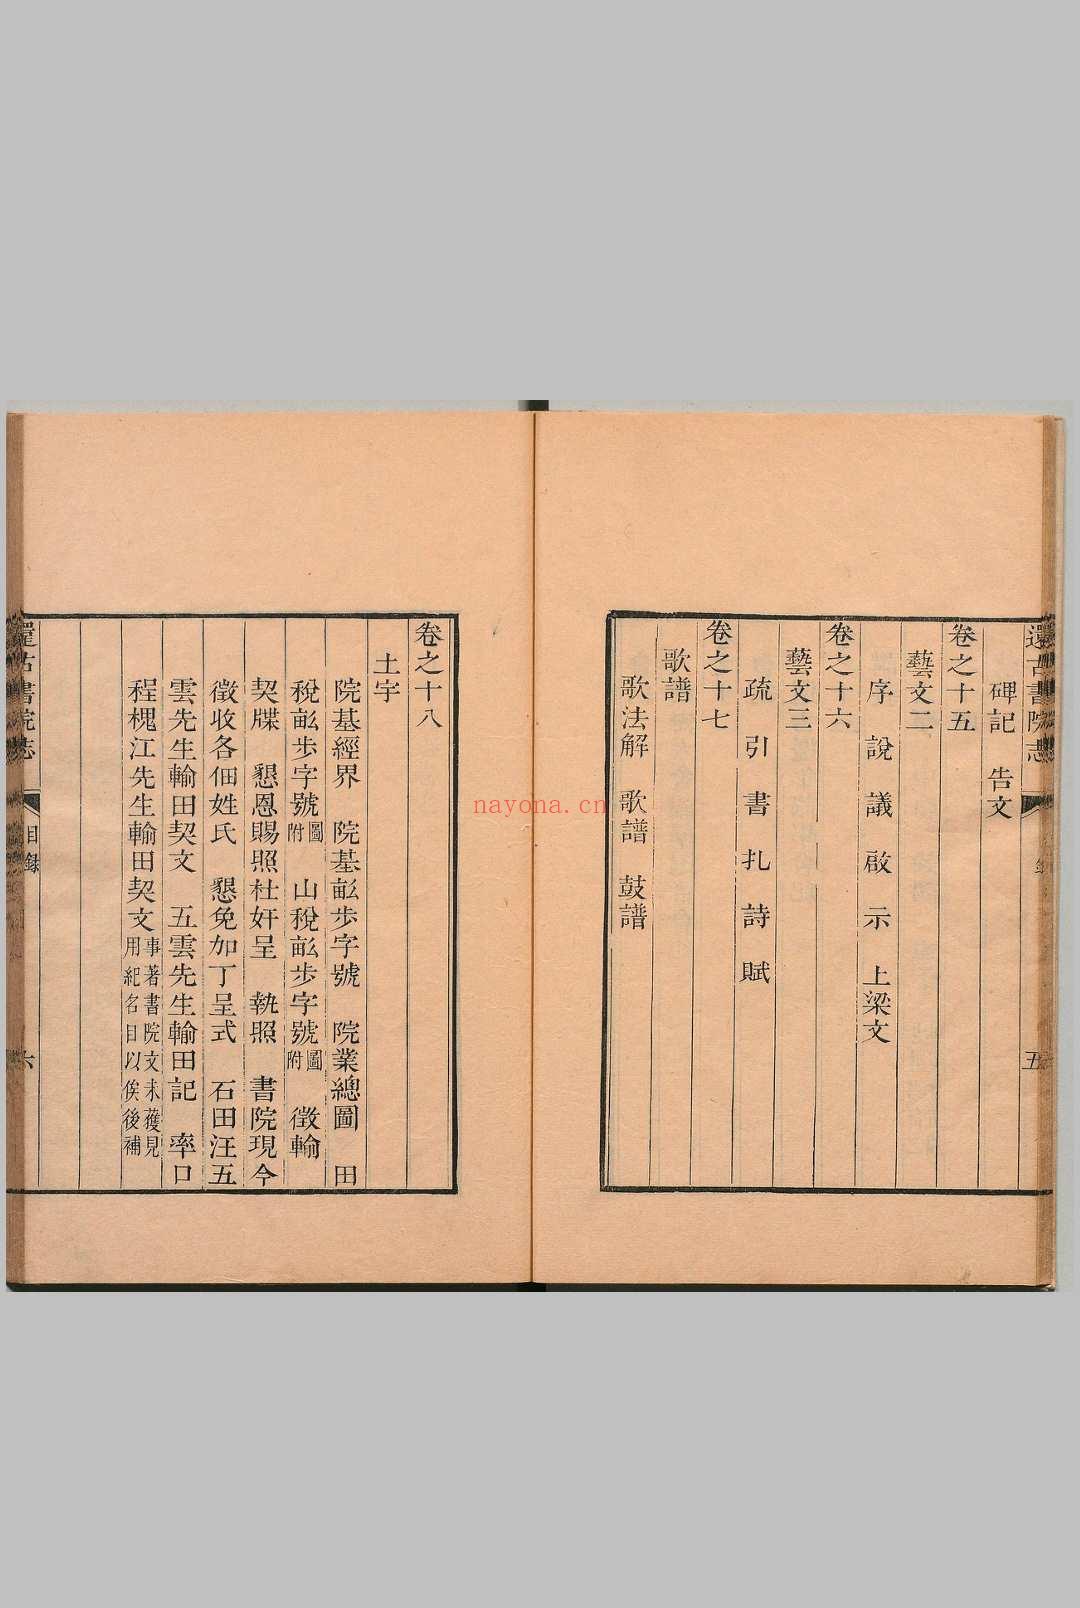 還古書院志
五
碑記 告文
卷之十五
藝文二
序 說 議 啟 示 上梁文
卷之十六
藝文三
疏 引 書 扎 詩 賦
卷之十七
歌譜
歌法解 歌譜 鼓譜
卷之十八
土宇
院基經界 院基畝步字號 院業總圖 田
稅畝步字號圖附 山稅畝步字號圖附 徵輸
契牒 懇恩賜照杜奸呈 執照 書院現今
徵收各佃姓氏 懇免加丁呈式 石田汪五
雲先生輸田契文 五雲先生輸田記 率口
程槐江先生輸田契文事著書院文未獲見
用紀名目以俟後補
還古書院志 目錄 六
nayona.cn